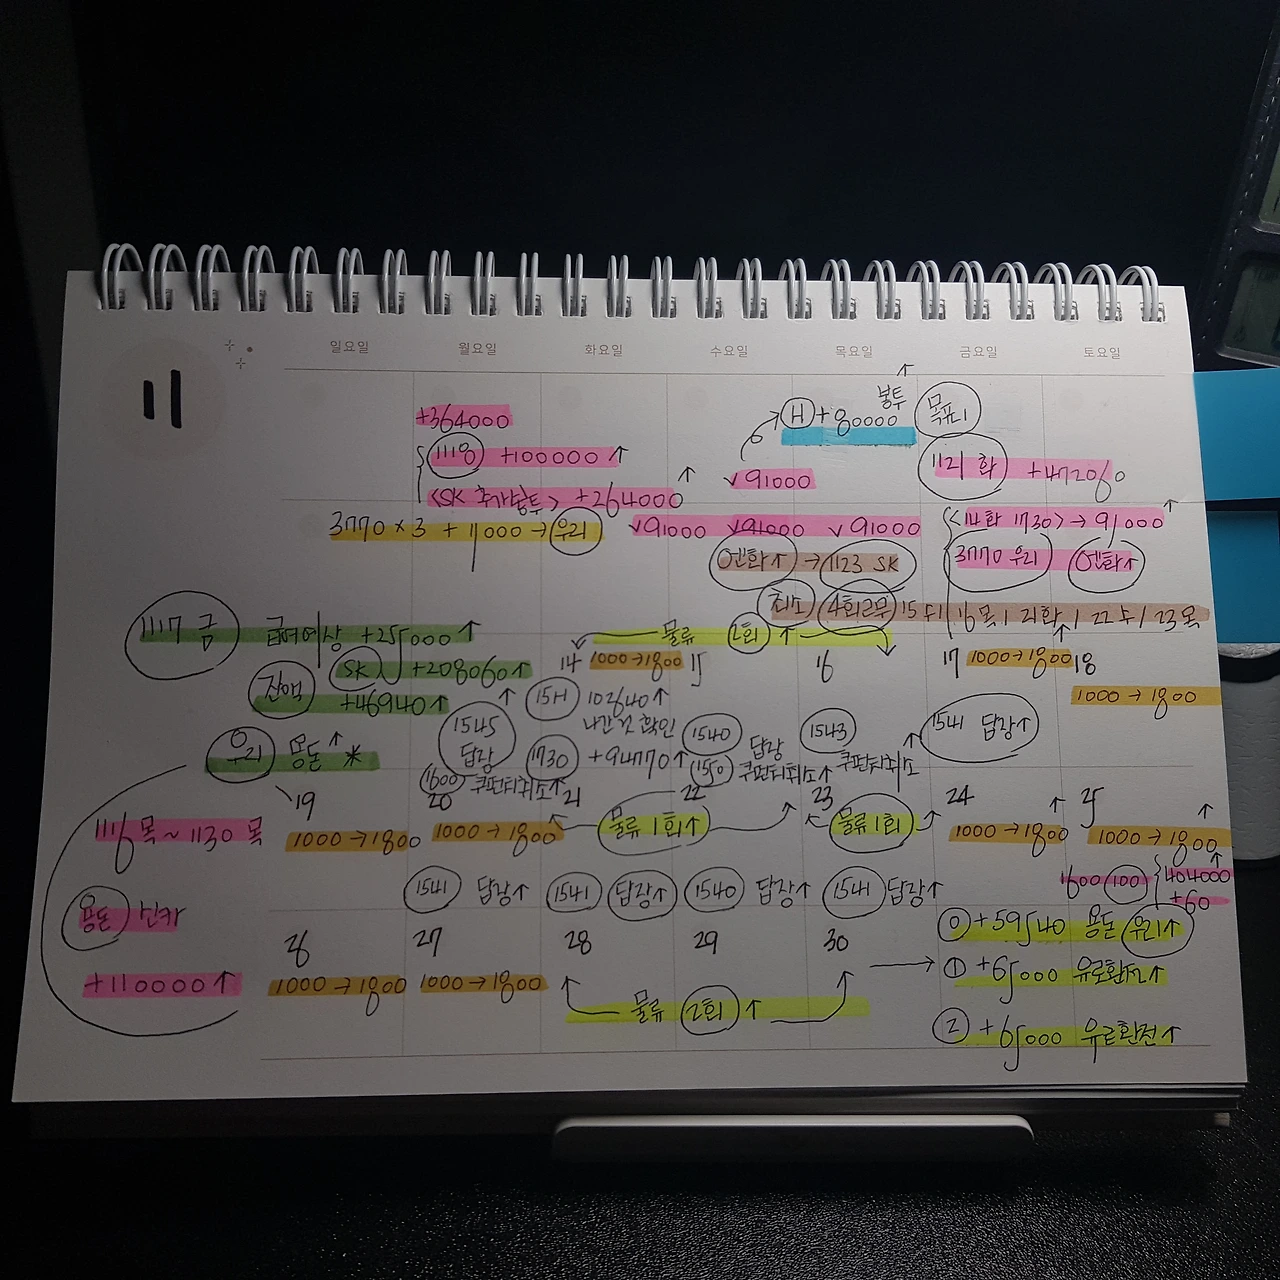 11
일요일 월요일 화요일 수요일 목요일 금요일 토요일
+364000
1118 +100000↑
<SK 추가봉투> +264000↑
√91000
H +80000 봉투↑
목표!
1121 화 +472060
3770×3 + 11000 → 우리
√91000 √91000 √91000
<14화 1730> → 91000↑
엔화↑ → 1123 SK
3770 우리 엔화↑
취소 4회근무 15수/16목/21화/22수/23목
1117 금 급여예상 +25000↑
SK +208060↑
잔액 +46940↑
우리 용돈↑ *
물류 2회↑
14 1000→1800 15 16 17 1000→1800↑ 18
1000→1800
1545 답장↑
1600 쿠펀티취소↑
15H 102640↑
나간것 확인
1730 +94770↑
1540 답장
1550 쿠펀티취소↑
1543 쿠펀티취소↑
1541 답장↑
19 20 21 22 23 24 25
1116목~1130 목
1000→1800 1000→1800↑ 물류 1회↑ 물류 1회↑ 1000→1800↑ 1000→1800↑
1541 답장↑ 1541 답장↑ 1540 답장↑ 1541 답장↑
1600 100 404000↑
+60
용돈
+110000↑
26 27 28 29 30
1000→1800 1000→1800
물류 2회↑
0 +59540 용돈 우리↑
1 +65000 유로환전↑
2 +65000 유로환전↑